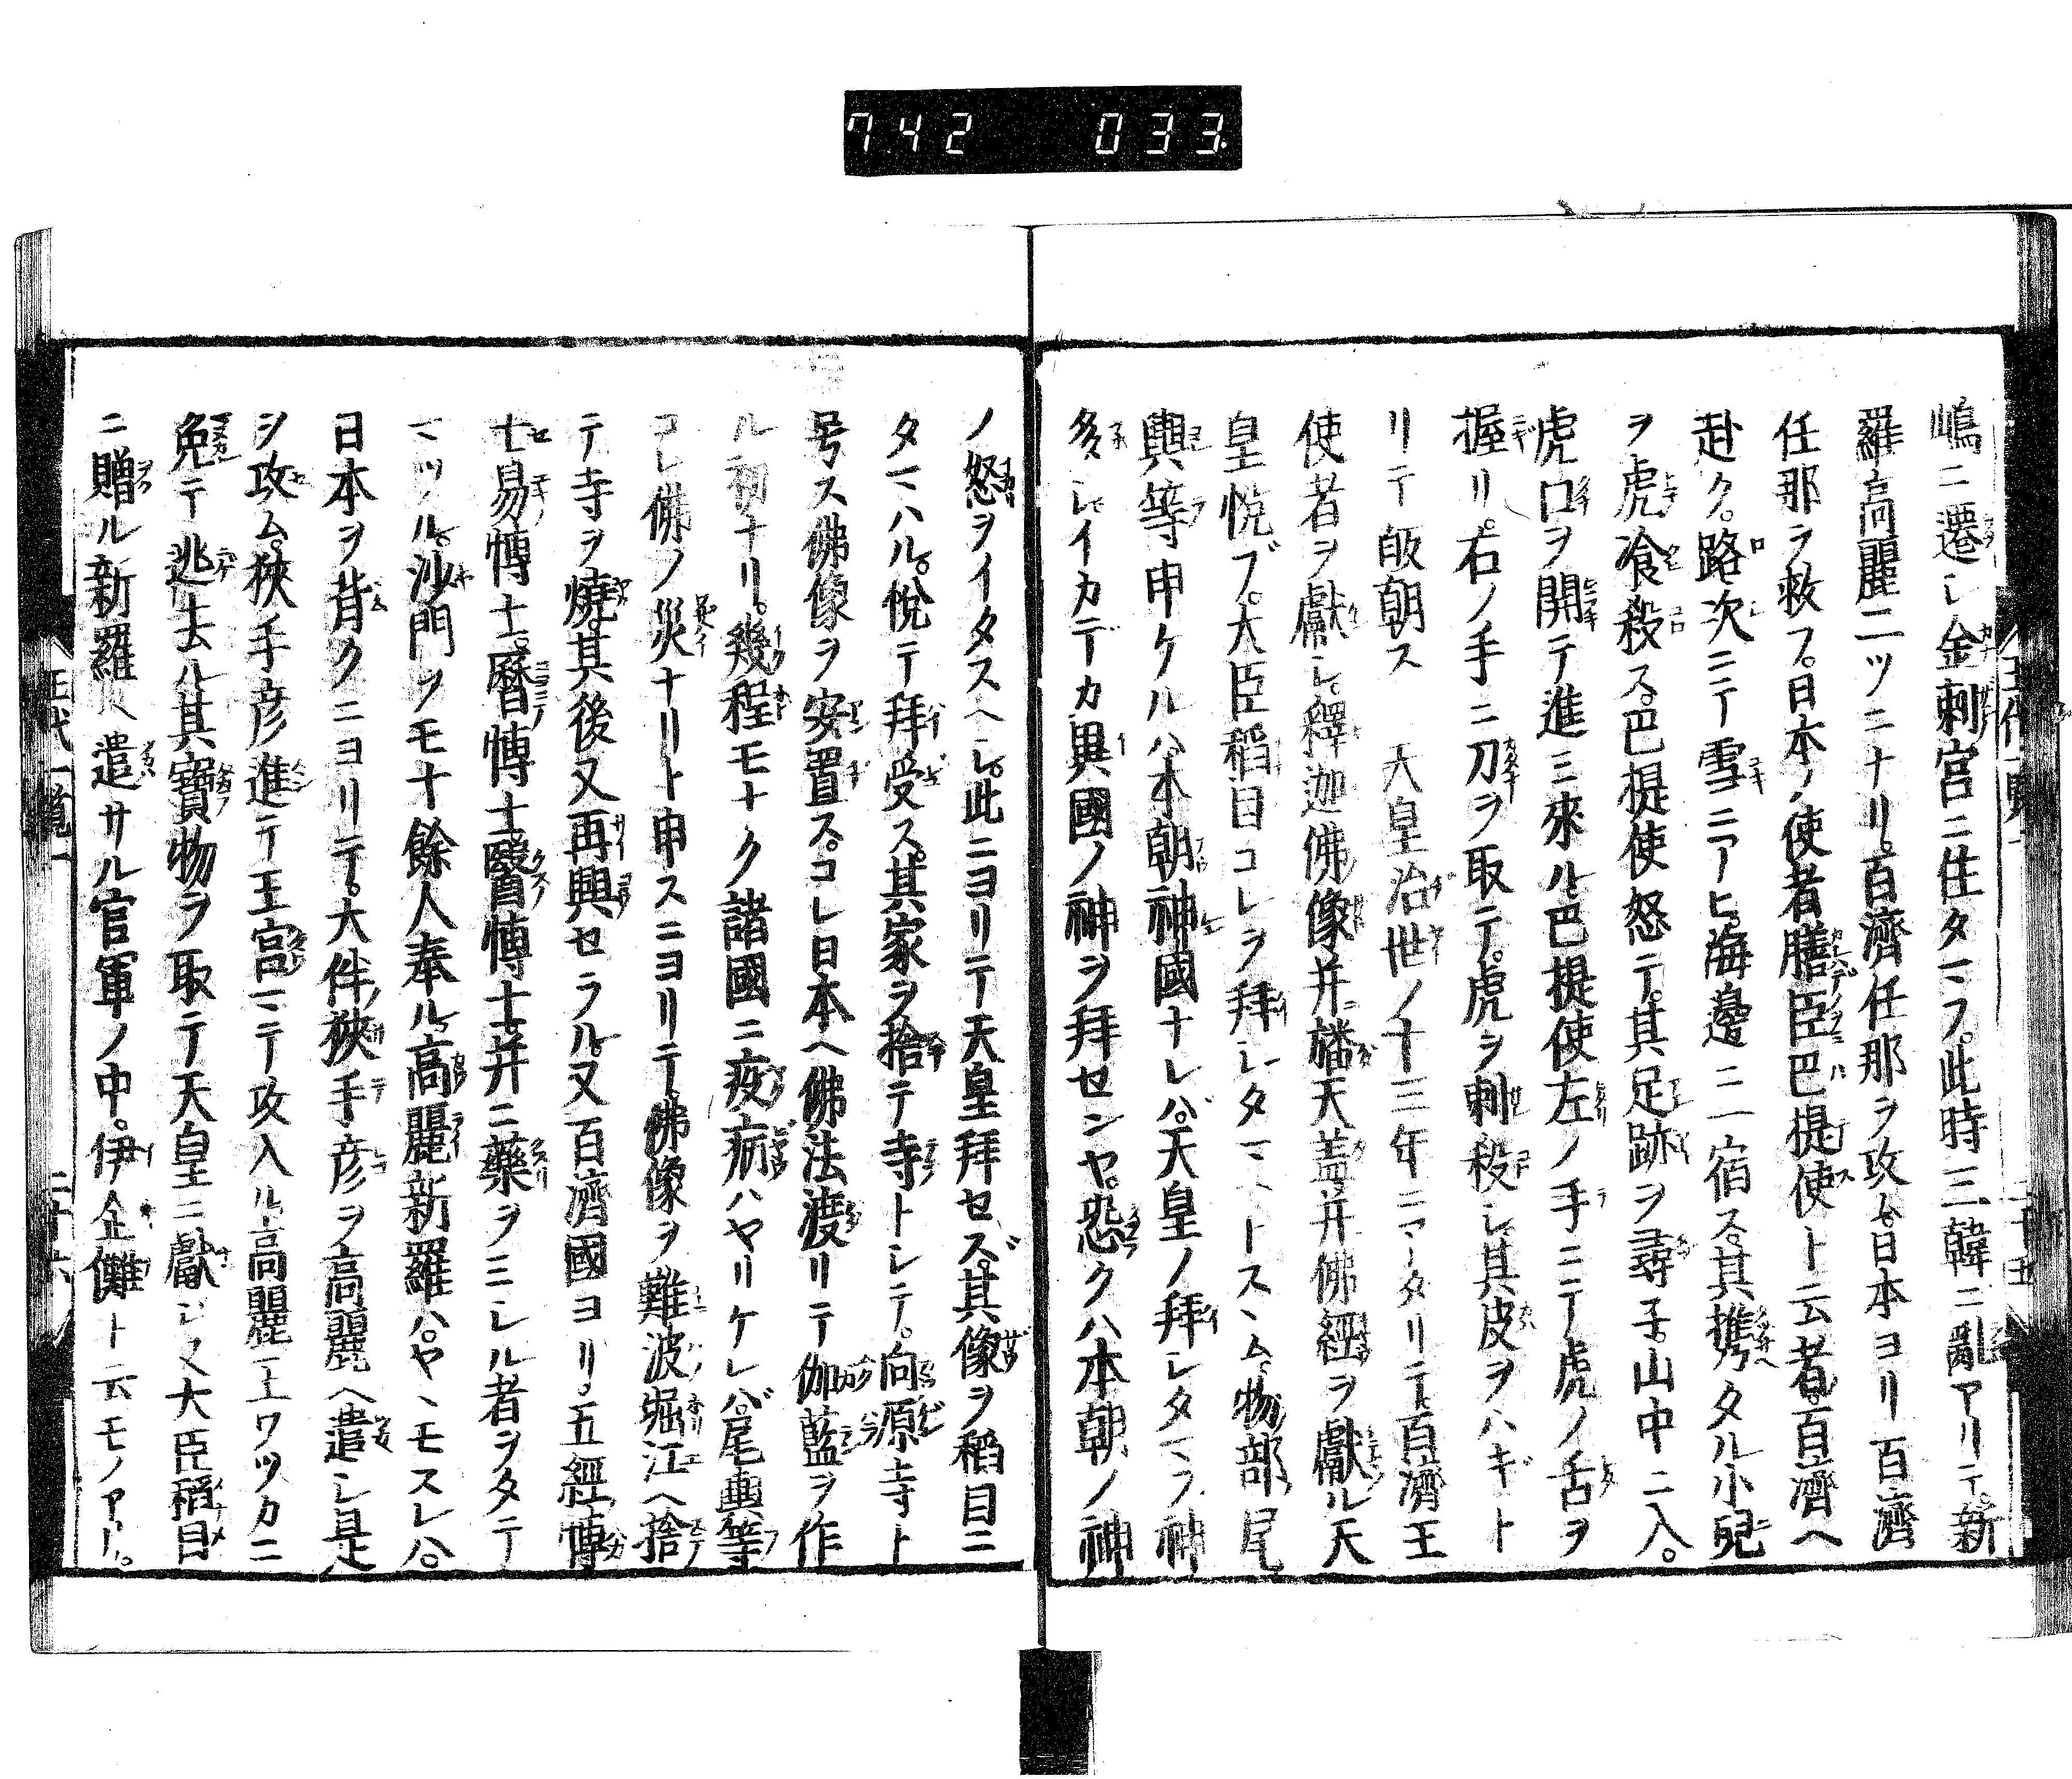 742 033
嶋ニ遷シ金刺宮ニ住タマフ。此時三韓ニ亂アリテ。新
羅高麗一ツニナリ。百濟任那ヲ攻ム。日本ヨリ百濟
任那ヲ救フ。日本ノ使者膳臣巴提使ト云者。百濟ヘ
赴ク。路次ニテ雪ニアヒ。海邊ニ一宿ス。其携タル小兒
ヲ虎飡殺ス。巴提使怒テ。其足跡ヲ尋子。山中ニ入。
虎口ヲ開テ進ミ來ル。巴提使左ノ手ニテ虎ノ舌ヲ
握リ。右ノ手ニ刀ヲ取テ。虎ヲ刺殺シ。其皮ヲハギト
リテ皈朝ス 天皇治世ノ十三年ニアタリテ。百濟王
使者ヲ獻シ。釋迦佛像并幡天蓋并佛經ヲ獻ル天
皇悦ブ。大臣稻目コレヲ拜シタマヘトスヽム。物部尾
輿等申ケルハ。本朝神國ナレバ。天皇ノ拜シタマフ神
多シ。イカデカ異國ノ神ヲ拜センヤ。恐クハ本朝ノ神
ノ怒ヲイタスヘシ。此ニヨリテ天皇拜セズ。其像ヲ稻目ニ
タマハル。悦テ拜受ス。其家ヲ捨テ寺トシテ。向原寺ト
号ス佛像ヲ安置ス。コレ日本ヘ佛法渡リテ伽藍ヲ作
ル初ナリ。幾程モナク諸國ニ疫病ハヤリケレバ。尾輿等
コレ佛ノ災ナリト申スニヨリテ。佛像ヲ難波堀江ヘ捨
テ寺ヲ燒。其後又再興セラル。又百濟國ヨリ。五經博
士易博士。曆博士醫博士并ニ藥ヲミシル者ヲタテ
マツル。沙門ヲモ十餘人奉ル。高麗新羅ハ。ヤヽモスレハ。
日本ヲ背クニヨリテ。大伴狹手彦ヲ高麗ヘ遣シ是
ヲ攻ム。狹手彦進テ王宮マテ攻入ル高麗王ワツカニ
免テ逃去ル其寶物ヲ取テ天皇ニ獻ジ又大臣稻目
ニ贈ル新羅ヘ遣サル官軍ノ中。伊企儺ト云モノアリ。
王代一覽一
二十六